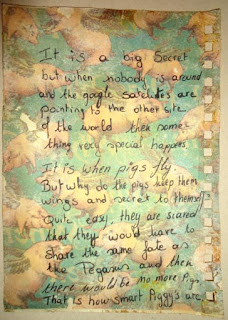 It is a big Secret
but when nobody is around
and the google satelides are
pointing to the other site
of the world then some
thing very special happens
It is when pigs fly
But why do the pigs keep them
wings and secret to themself
Quite easy, they are scared
that they would have to
Share the same fate as
the Pegasus and then
there would be no more Pigs.
That is how smart Piggy's are.